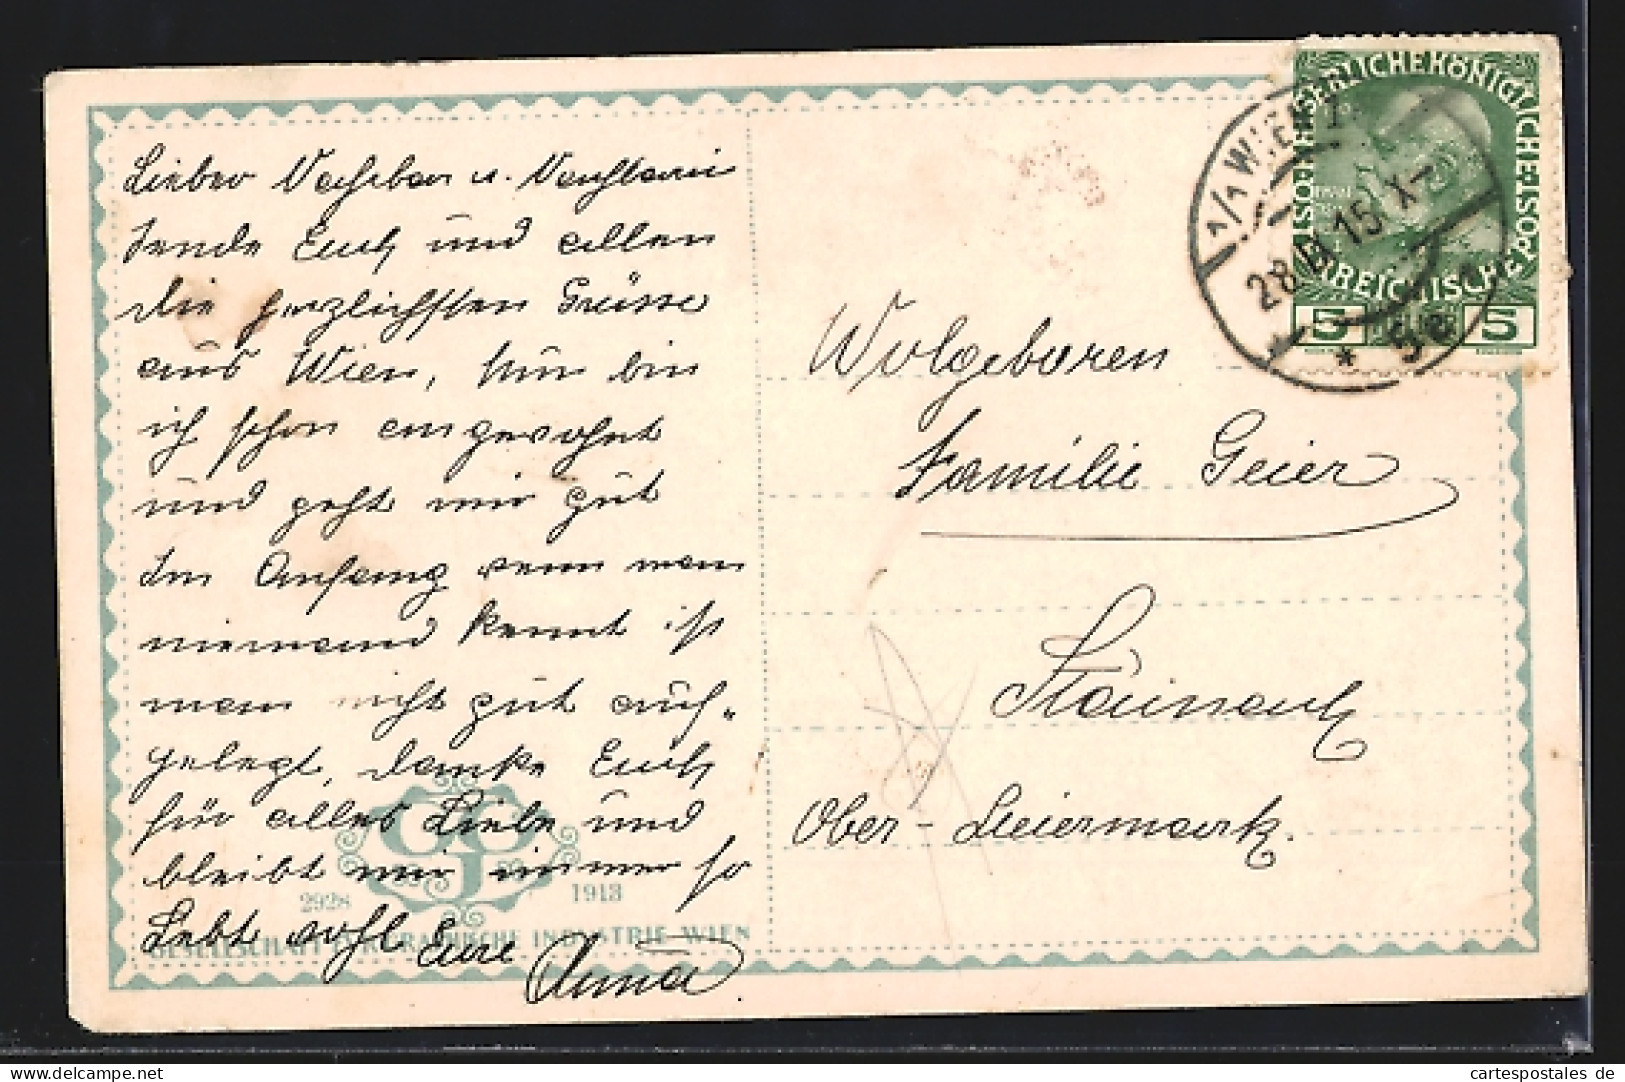 Lieber Nachbar u. Nachbarin
sende Euch und allen
die herzlichsten Grüsse
aus Wien, nun bin
ich schon eingewohnt
und geht mir gut
Im Anfang wenn man
niemand kennt ist
man nicht gut auf-
gelegt, danke Euch
für alles Liebe und
bleibt mir immer so
Lebt wohl Eure Anna
2928 1913
GESELLSCHAFT FÜR GRAPHISCHE INDUSTRIE WIEN
KAISERLICHE KÖNIGLICHE
ÖSTERREICHISCHE POST
5 5
1/1 WIEN 1
28. III 15. X-
* * 5e
Wolgeboren
Familie Geier
Stainach
Ober-Steiermark.
cartespostales de